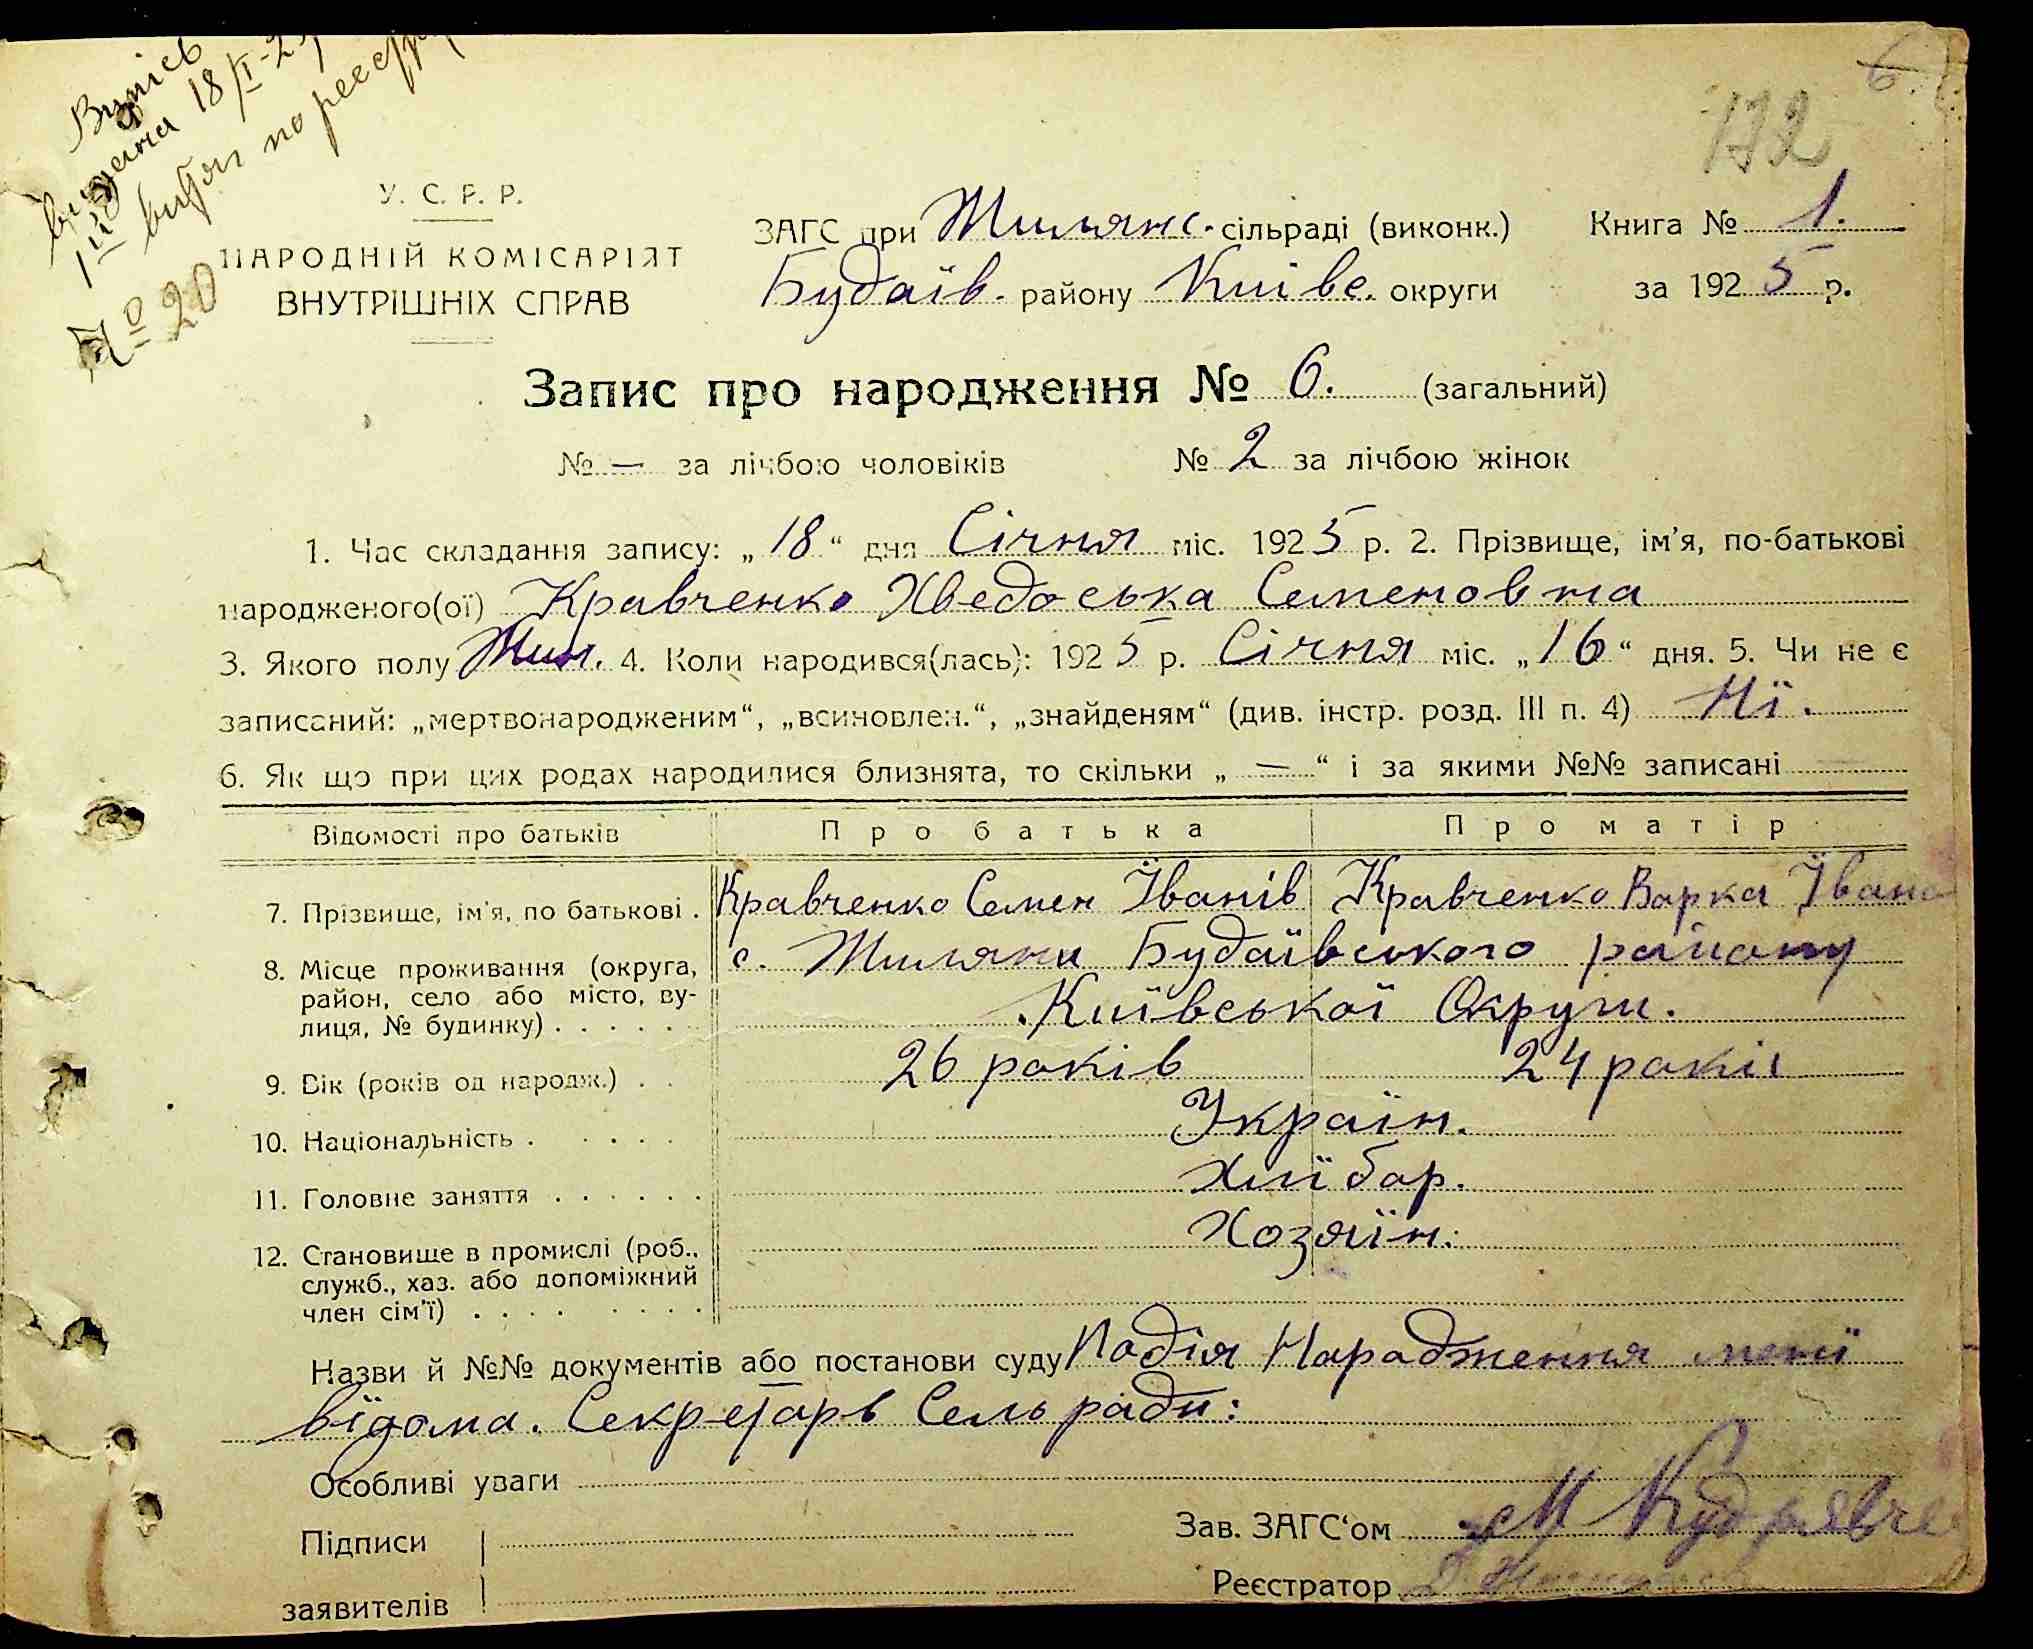 Випісь
видана 18/I-25
1ій витяг по реестр
№ 20
172
6.
У. С. Р. Р.
НАРОДНІЙ КОМІСАРІЯТ
ВНУТРІШНІХ СПРАВ
ЗАГС при Жилянс. сільраді (виконк.) Книга № 1.
Будаїв. району Київс. округи за 1925 р.
Запис про народження № 6. (загальний)
№ — за лічбою чоловіків № 2 за лічбою жінок
1. Час складання запису: „18“ дня Січня міс. 1925 р. 2. Прізвище, ім'я, по-батькові
народженого(ої) Кравченко Хведоська Семеновна
3. Якого полу Жин. 4. Коли народився(лась): 1925 р. Січня міс. „16“ дня. 5. Чи не є
записаний: „мертвонародженим“, „всиновлен.“, „знайденям“ (див. інстр. розд. III п. 4) Нї.
6. Як що при цих родах народилися близнята, то скільки „ — “ і за якими №№ записані
Відомості про батьків Про батька Про матір
7. Прізвище, ім'я, по батькові . Кравченко Семен Їванів Кравченко Варка Ївано
8. Місце проживання (округа, с. Жиляни Будаївського району
район, село або місто, ву- Київської Округи.
лиця, № будинку) . . . . .
9. Вік (років од народж.) . . 26 раків 24 раків
10. Національність . . . . . Україн.
11. Головне заняття . . . . . . Хлїбор.
12. Становище в промислі (роб., Хозяїн.
служб., хаз. або допоміжний
член сім'ї) . . . . . . . .
Назви й №№ документів або постанови суду Падія Народження менї
вїдома. Секретарь Сельради:
Особливі уваги
Підписи Зав. ЗАГС'ом М Кудрявче
заявителів Реєстратор